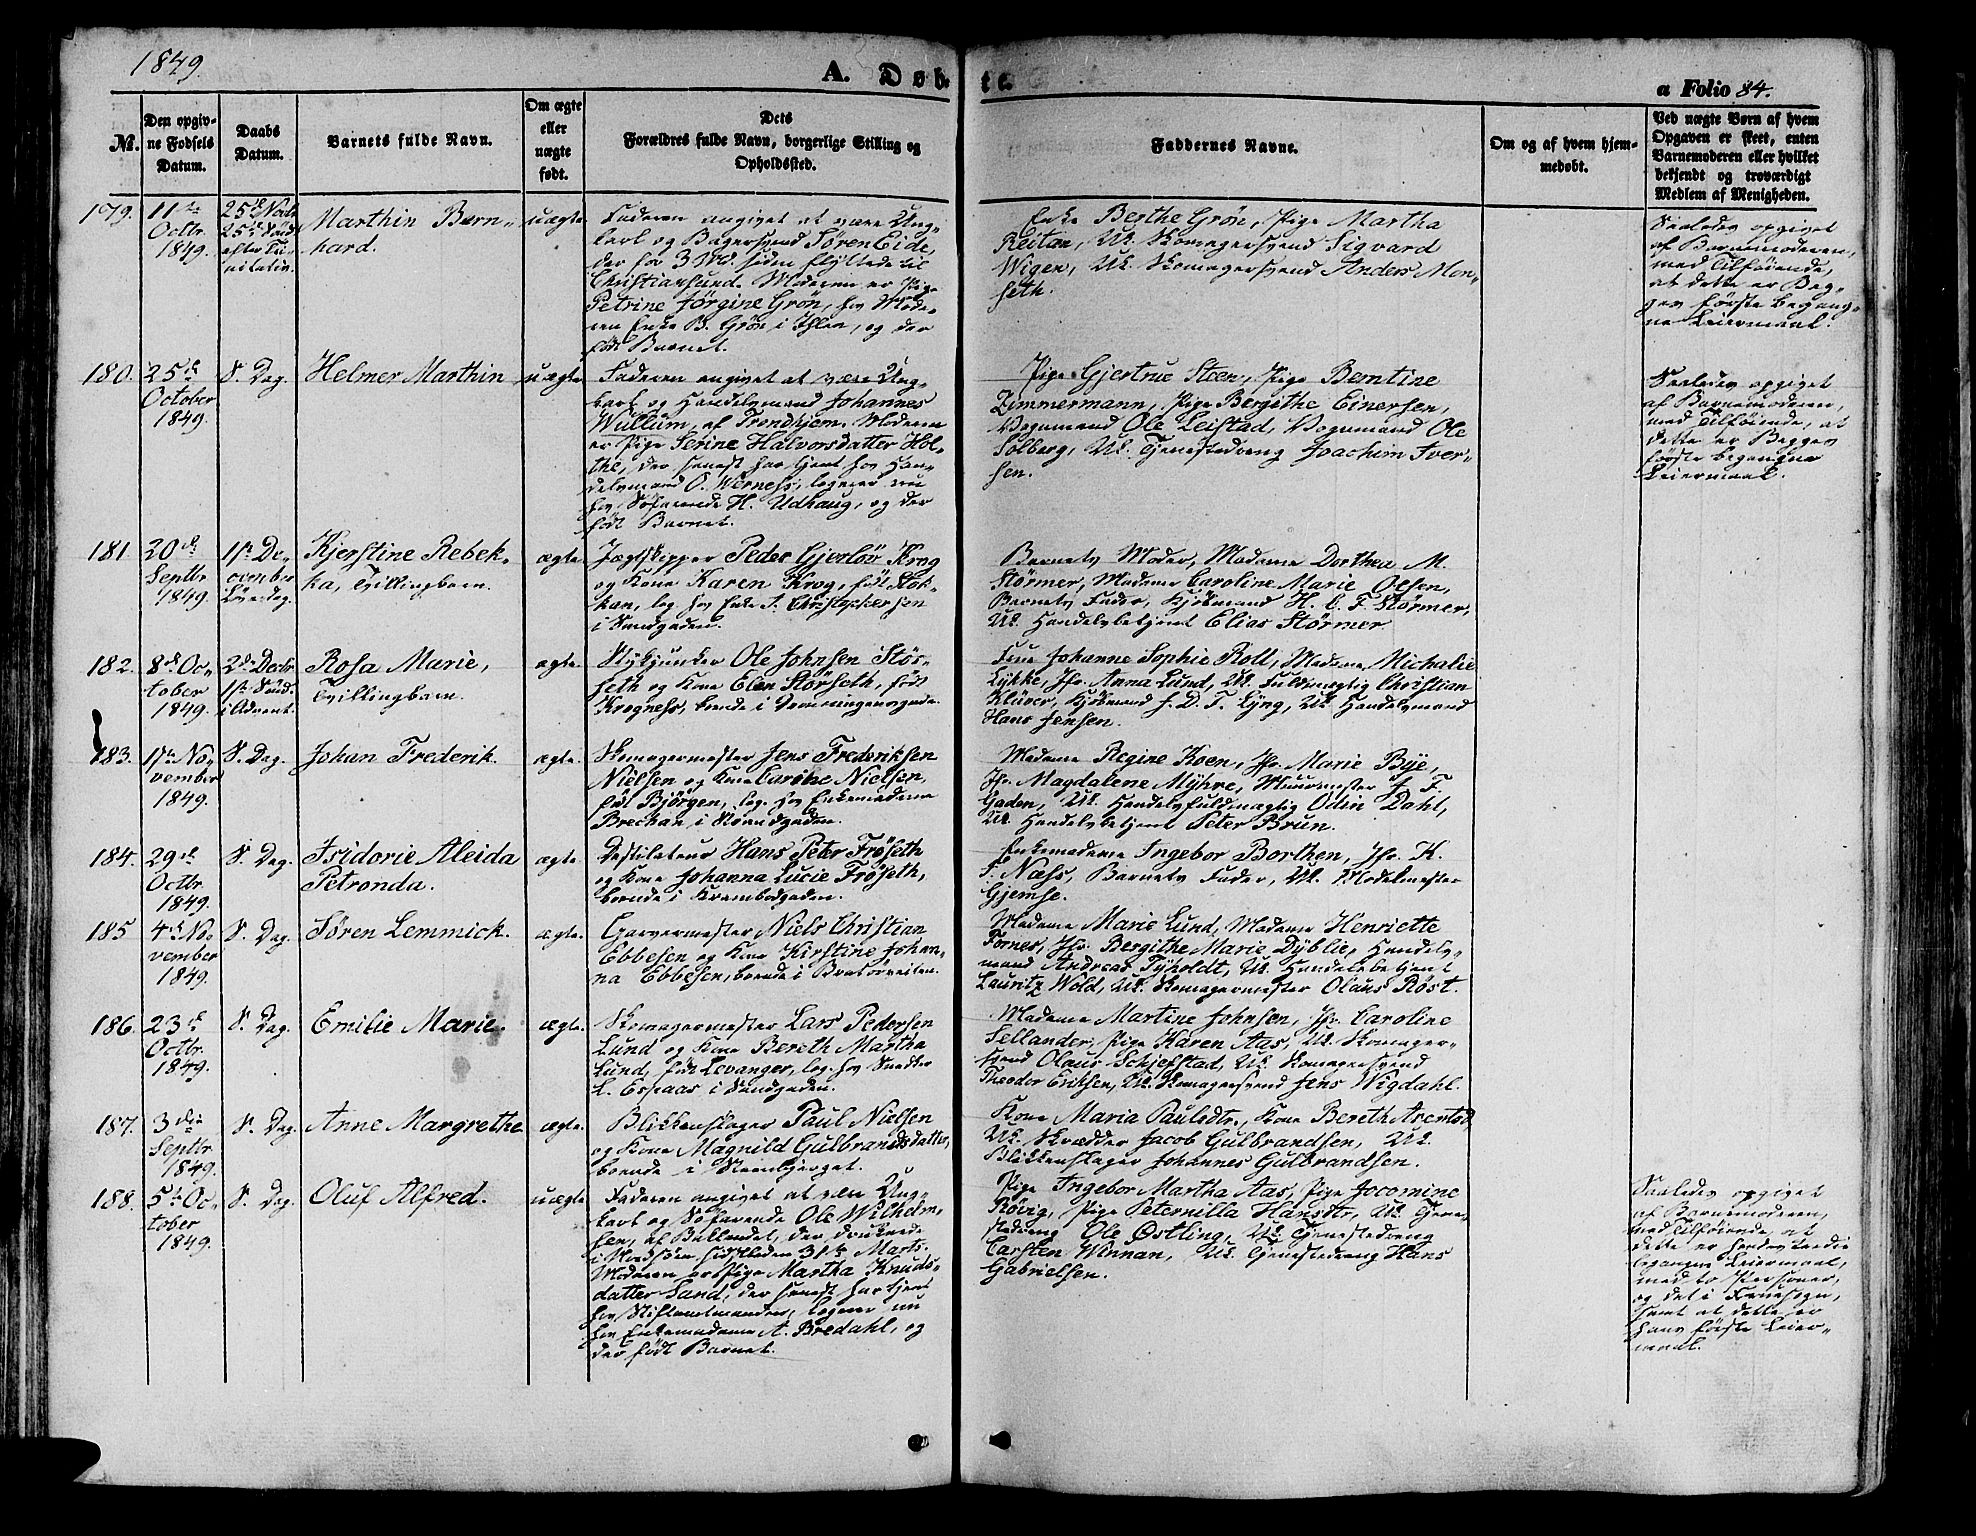 1849.
A. Døb-
te.
a Folio 84.
No.
Den opgiv-
ne Fødsels
Datum.
Daabs
Datum.
Barnets fulde Navn.
Om ægte
eller
uægte
født.
Dets
Forældres fulde Navn, borgerlige Stilling og
Opholdssted.
Faddernes Navne.
Om og af hvem hjem-
medøbt.
Ved uægte Børn af hvem
Opgaven er skeet, enten
Barnemoderen eller hvilket
bekjendt og troværdigt
Medlem af Menigheden.
179.
11te
Octbr.
1849.
25de Novbr
25de Sönd.
efter Tri-
nitatis.
Marthin Bern-
hard.
uægte.
Faderen angivet at være Ung-
karl og Bagersvend Sören Eide,
der for 3 Md. siden flyttede til
Christiansund. Moderen er Pige
Petrine Jörgine Grön, hos Mode-
ren Enke B. Grön i Ihlen, og der
födt Barnet.
Enke Berthe Grön, Pige Martha
Reitan, Uk. Skomagersvend Sigvard
Wigen, Uk. Skomagersvend Anders Mon-
seth.
Saaledes opgivet
af Barnemoderen,
med Tilföiende,
at dette er Beg-
ges förste begang-
ne Leiermaal.
180.
25de
October
1849.
S. Dag.
Helmer Marthin
uægte
Faderen angivet at være Ung-
karl og Handelsmand Johannes
Wullum, af Trondhjem. Moderen
er Pige Serine Halvorsdatter Hol-
the, der senest har tjent hos Han-
delsmand O. Werness, logerer nu
hos Söfarende H. Udhaug, og der
födt Barnet.
Pige Gjertrue Steen, Pige Berntine
Zimmermann, Pige Bergithe Einersen,
Vognmand Ole Leistad, Vognmand Ole
Solberg, Uk. Tjenestedreng Joachim Iver-
sen.
Saaledes opgivet
af Barnemoderen,
med Tilföiende, at
dette er Begges
förste begangne
Leiermaal.
181.
20de
Septbr
1849.
1ste De-
cember
Löverdag.
Kjerstine Rebek-
ka, Tvillingbarn.
ægte.
Jægtskipper Peder Gjerlöv Krog
og Kone Karen Krog, födt Stok-
kan, log. hos Enke S. Christophersen
i Sandgaden.
Barnets Moder, Madame Dorthea M.
Störmer, Madame Caroline Marie Olsen,
Barnets Fader, Kjöbmand H. C. F. Störmer,
Uk. Handelsbetjent Elias Störmer.
182.
8de Oc-
tober
1849.
2den Decbr
1ste Sönd.
i Advent.
Rosa Marie,
Tvillingbarn.
ægte.
Stykjunker Ole Johnsen Stör-
seth og Kone Elen Störseth, födt
Krogness, boende i Dronningensgade.
Frue Johanne Sophie Roll, Madame Michalie
Lykke, Jfr. Anna Lund, Uk. Fuldmægtig Christian
Klüver, Kjöbmand J. D. F. Lyng, Uk. Handelsmand
Hans Jensen.
183.
1ste No-
vember
1849.
S. Dag.
Johan Frederik.
ægte.
Skomagermester Jens Frederiksen
Nielsen og Kone Caroline Nielsen,
föd Björgen, log. hos Enkemadame
Brechan i Strandgaden.
Madame Regine Koen, Jfr. Marie Bye,
Jfr. Magdalene Myhre, Muurmester J. F.
Gaden, Uk. Handelsfuldmægtig Odin Dahl,
Uk. Handelsbetjent Peter Brun.
184.
29de
Octbr.
1849.
S. Dag.
Isidorie Aleida
Petronda.
ægte.
Destilateur Hans Peter Fröseth
og Kone Johanna Lucie Fröseth,
boende i Krambodgaden.
Enkemadame Ingebor Borthen, Jfr. K.
F. Næss, Barnets Fader, Uk. Modelmester
Gjemse.
185
4de No-
vember
1849.
S. Dag.
Sören Lemmick.
ægte.
Garvermester Niels Christian
Ebbesen og Kone Kirstine Johan-
na Ebbesen, boende i Bratörveiten.
Madame Marie Lund, Madame Henriette
Fornes, Jfr. Bergithe Marie Dyblie, Handels-
mand Andreas Tyholdt, Uk. Handelsbetjent
Lauritz Wold, Uk. Skomagermester Olaus Röst.
186.
23de
Octbr.
1849.
S. Dag.
Emilie Marie.
ægte.
Skomagermester Lars Pedersen
Lund og Kone Bereth Martha
Lund, födt Levanger, log. hos Snedker
L. Espaas i Sandgaden.
Madame Martine Johnsen, Jfr. Caroline
Sellander, Pige Karen Aas, Uk. Skomager-
svend Olaus Schjefstad, Uk. Skomagersvend
Theodor Eriksen, Uk. Skomagersvend Jens Wigdahl.
187.
3die
Septbr
1849.
S. Dag.
Anne Margrethe
ægte.
Blikkenslager Paul Nielsen
og Kone Magnild Gulbrandsdatter,
boende i Steenbjerget.
Kone Maria Paulsdtr., Kone Bereth Arentsd.
Uk. Skrædder Jacob Gulbrandsen, Uk.
Blikkenslager Johannes Gulbrandsen.
188.
5te Oc-
tober
1849.
S. Dag.
Oluf Alfred.
uægte
Faderen angivet at være Ung-
karl og Söfarende Ole Wilhelm-
sen, af Baklandet, der druknede
i Nordsöen sidstleden 31te Marts.
Moderen er Pige Martha Knuds-
datter Sand, der senest har tjent
hos Stiftamtmanden, logerer nu
hos Enkemadame A. Bredahl, og
der födt Barnet.
Pige Ingebor Martha Aas, Pige Jocomine
Rövig, Pige Peternilla Hansdtr., Uk. Tjene-
stedreng Ole Østling, Uk. Tjenestedreng
Carsten Winnan, Uk. Tjenestedreng Hans
Gabrielsen.
Saaledes opgivet
af Barnemoderen,
med Tilföiende at
dette er hendes tredie
begangne Leiermaal,
med to Personer,
og det i Fruesogn,
samt at dette er
hans förste Leier-
maal.